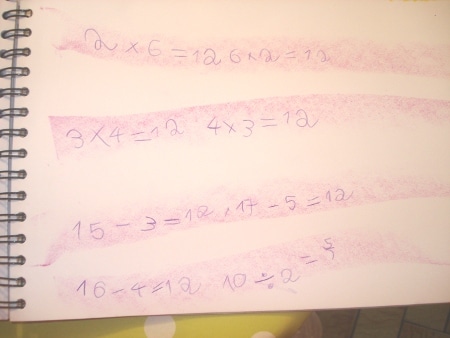 2 × 6 = 12 6 × 2 = 12
3 × 4 = 12 4 × 3 = 12
15 - 3 = 12, 17 - 5 = 12
16 - 4 = 12 10 ÷ 2 = 5